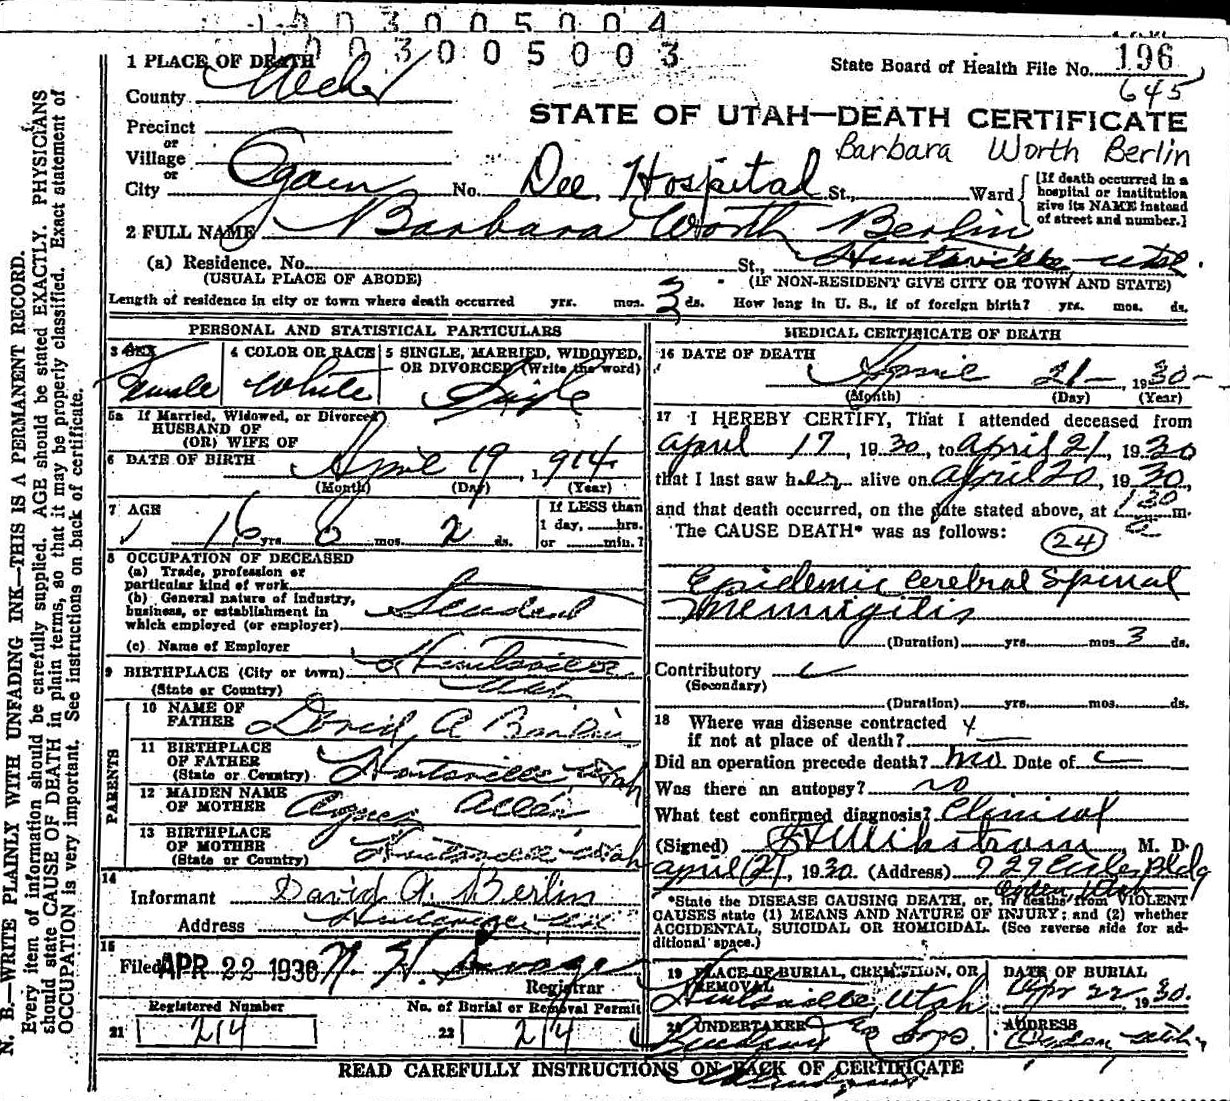 1003005004
1003005003
1 PLACE OF DEATH
State Board of Health File No. 196
645
County Weber
STATE OF UTAH—DEATH CERTIFICATE
Precinct
or
Village
or
Barbara Worth Berlin
City Ogden No. Dee Hospital St., Ward
[If death occurred in a
hospital or institution
give its NAME instead
of street and number.]
2 FULL NAME Barbara Worth Berlin
(a) Residence. No. St., Huntsville Utah.
(USUAL PLACE OF ABODE) (IF NON-RESIDENT GIVE CITY OR TOWN AND STATE)
Length of residence in city or town where death occurred yrs. mos. 3 ds. How long in U. S., if of foreign birth? yrs. mos. ds.
PERSONAL AND STATISTICAL PARTICULARS
3 SEX
Female
4 COLOR OR RACE
White
5 SINGLE, MARRIED, WIDOWED,
OR DIVORCED (Write the word)
Single
5a If Married, Widowed, or Divorced
HUSBAND OF
(OR) WIFE OF
6 DATE OF BIRTH April 19, 1914
(Month) (Day) (Year)
7 AGE
16 yrs. 0 mos. 2 ds.
If LESS than
1 day, hrs.
or min.?
8 OCCUPATION OF DECEASED
(a) Trade, profession or
particular kind of work
(b) General nature of industry,
business, or establishment in
which employed (or employer)
Student
(c) Name of Employer
9 BIRTHPLACE (City or town) Huntsville
(State or Country) Utah
PARENTS
10 NAME OF
FATHER David A Berlin
11 BIRTHPLACE
OF FATHER
(State or Country) Huntsville Utah
12 MAIDEN NAME
OF MOTHER Agnes Allen
13 BIRTHPLACE
OF MOTHER
(State or Country) Huntsville Utah
14
Informant David A. Berlin
Address Huntsville Utah
15
Filed APR 22 1930
Registrar
Registered Number
21 214
No. of Burial or Removal Permit
22 214
MEDICAL CERTIFICATE OF DEATH
16 DATE OF DEATH
April 21 — , 1930 —
(Month) (Day) (Year)
17 I HEREBY CERTIFY, That I attended deceased from
April 17, 1930, to April 21, 1930
that I last saw her alive on April 20, 1930,
and that death occurred, on the date stated above, at 130 m.
The CAUSE DEATH* was as follows:
24
Epidemic Cerebral Spinal
Meningitis
(Duration) yrs. mos. 3 ds.
Contributory
(Secondary)
(Duration) yrs. mos. ds.
18 Where was disease contracted
if not at place of death?
Did an operation precede death? no Date of
Was there an autopsy? no
What test confirmed diagnosis? Clinical
(Signed) , M. D.
April 21, 1930. (Address) 929 Eccles Bldg
Ogden, Utah
*State the DISEASE CAUSING DEATH, or, in deaths from VIOLENT
CAUSES state (1) MEANS AND NATURE OF INJURY; and (2) whether
ACCIDENTAL, SUICIDAL OR HOMICIDAL. (See reverse side for ad-
ditional space.)
19 PLACE OF BURIAL, CREMATION, OR
REMOVAL
Huntsville, Utah
DATE OF BURIAL
Apr 22 1930.
20 UNDERTAKER
& Sons
ADDRESS
Ogden Utah
READ CAREFULLY INSTRUCTIONS ON BACK OF CERTIFICATE
N. B.—WRITE PLAINLY WITH UNFADING INK—THIS IS A PERMANENT RECORD.
Every item of information should be carefully supplied. AGE should be stated EXACTLY. PHYSICIANS
should state CAUSE OF DEATH in plain terms, so that it may be properly classified. Exact statement of
OCCUPATION is very important. See instructions on back of certificate.